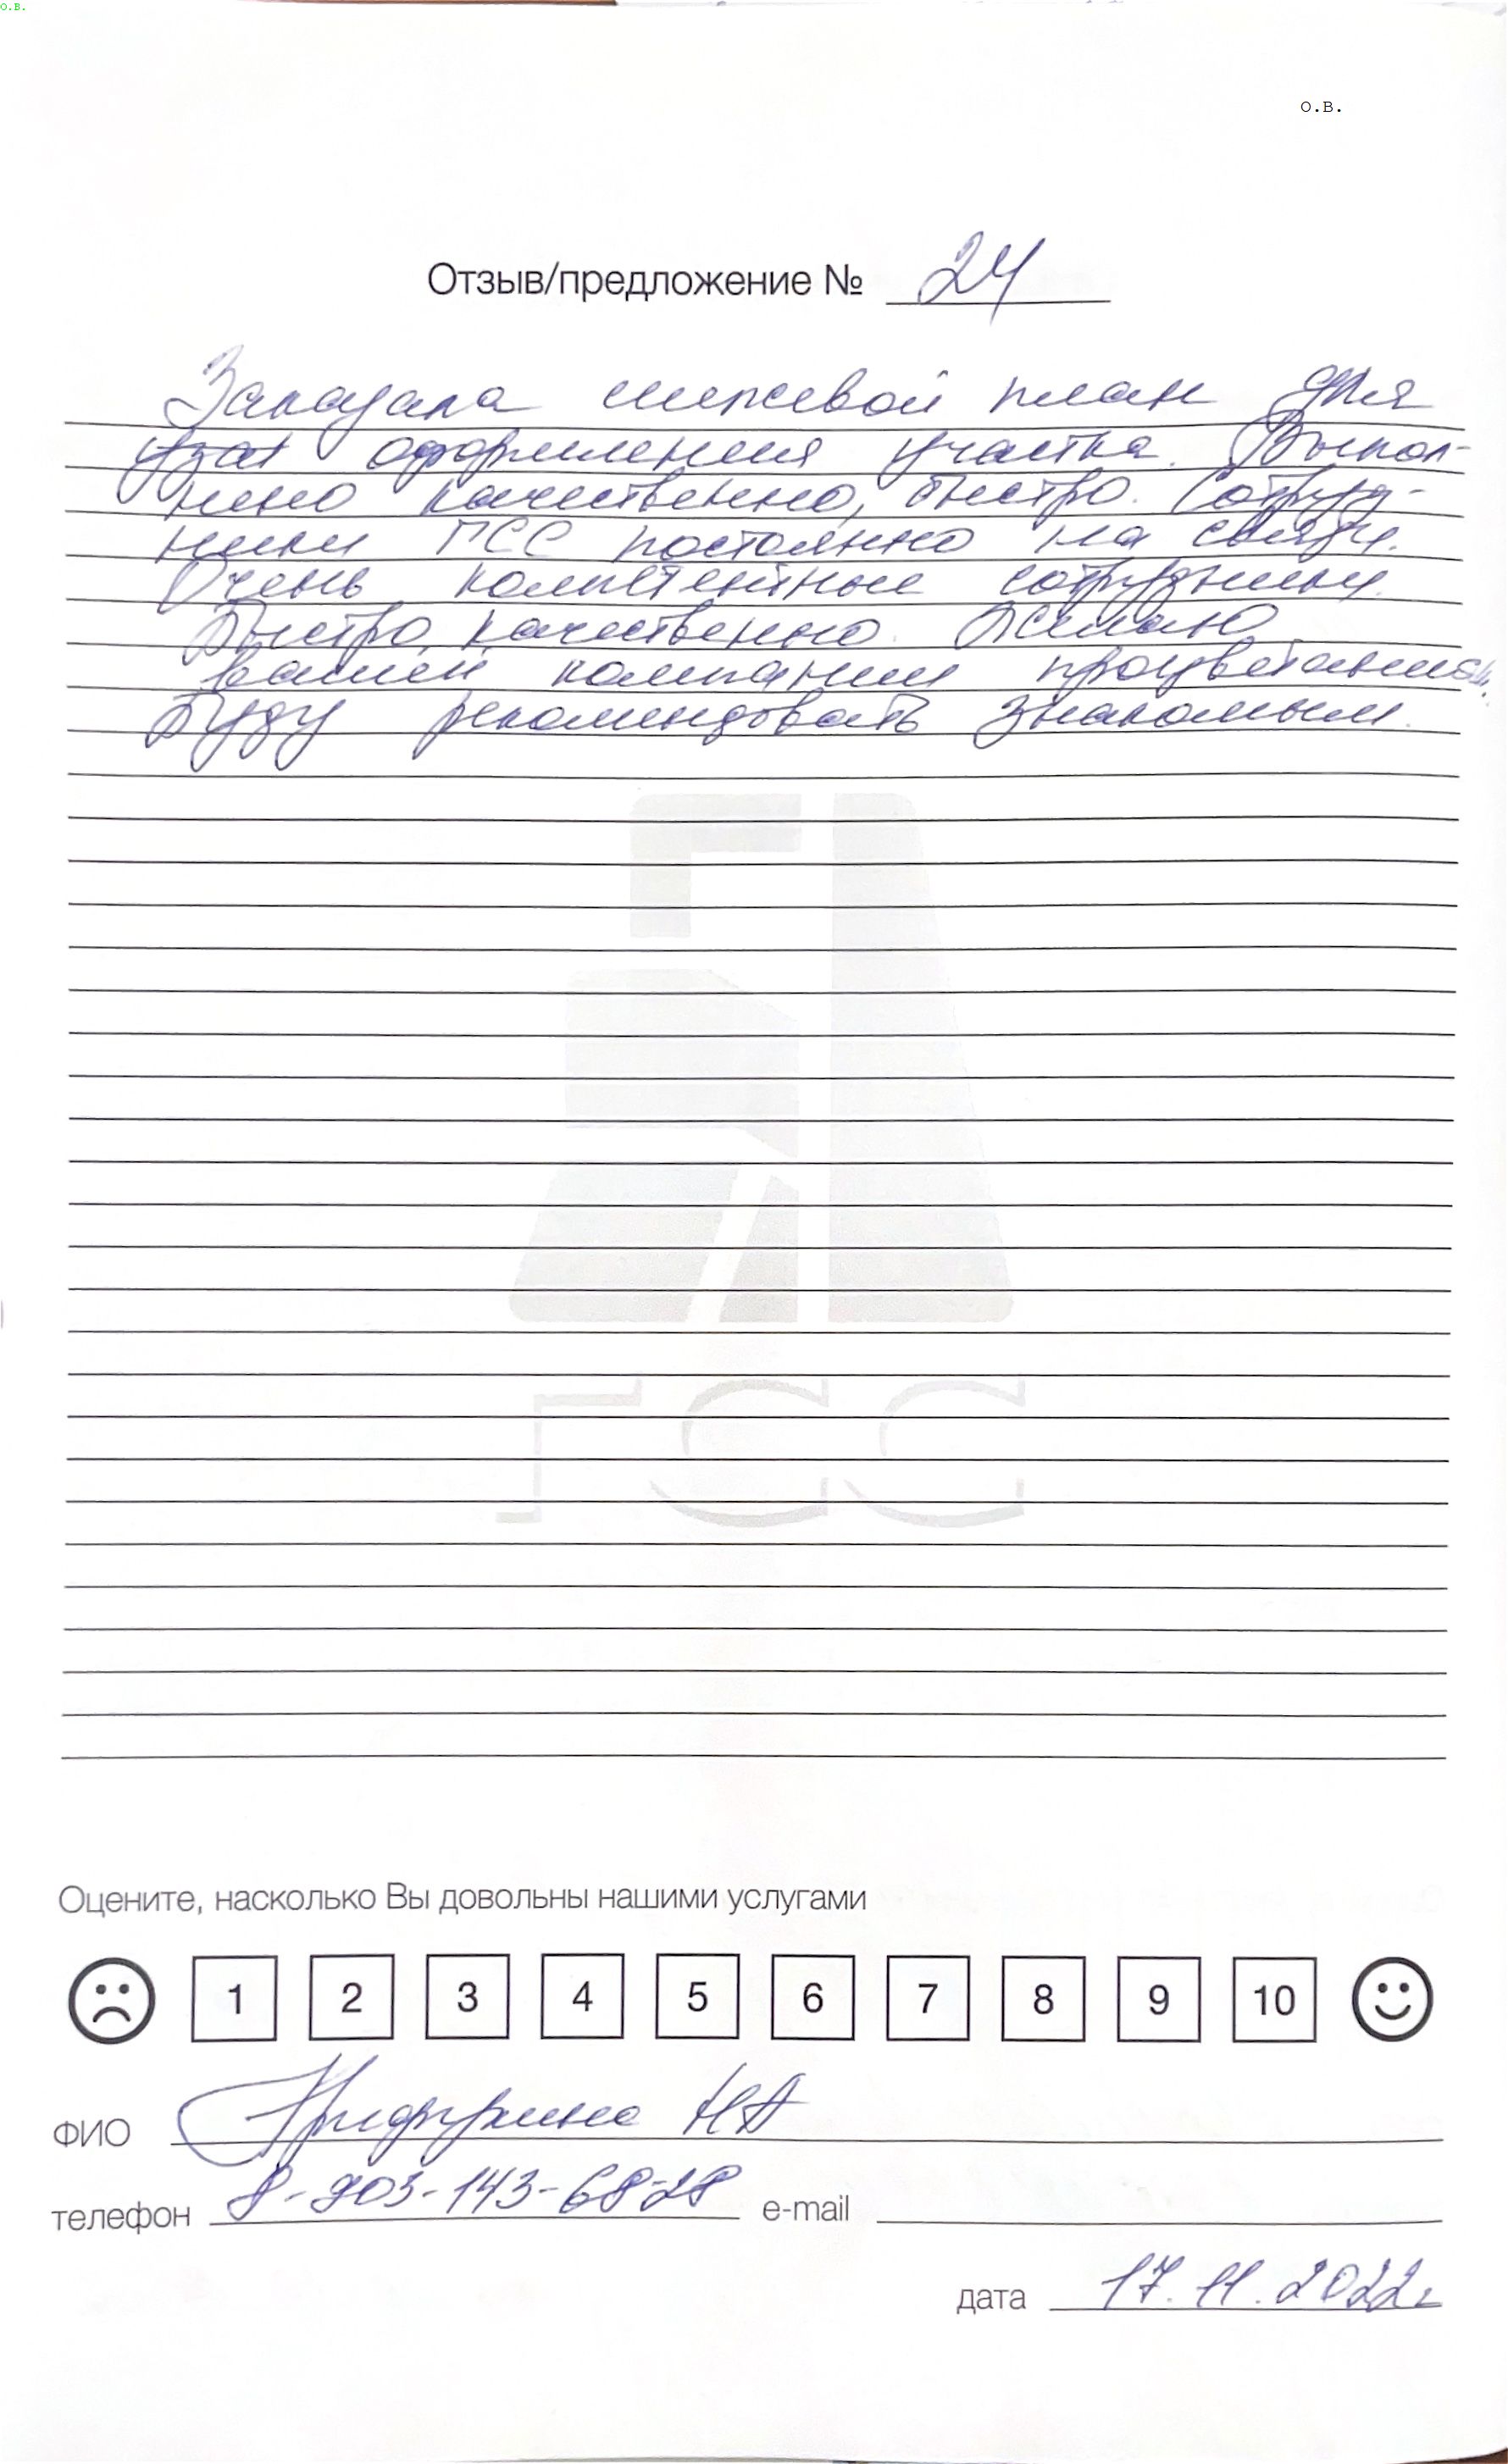 О.В.
О.В.
Отзыв/предложение № 24
Заказала межевой план для
оформления участка. Выпол-
нено качественно, быстро. Сотруд-
ники ГСС постоянно на связи.
Очень компетентные сотрудники.
Быстро, качественно. Желаю
вашей компании процветания.
Буду рекомендовать знакомым.
ГСС
Оцените, насколько Вы довольны нашими услугами
1 2 3 4 5 6 7 8 9 10
ФИО
телефон 8-903-143-68-28 e-mail
дата 17.11.2022г